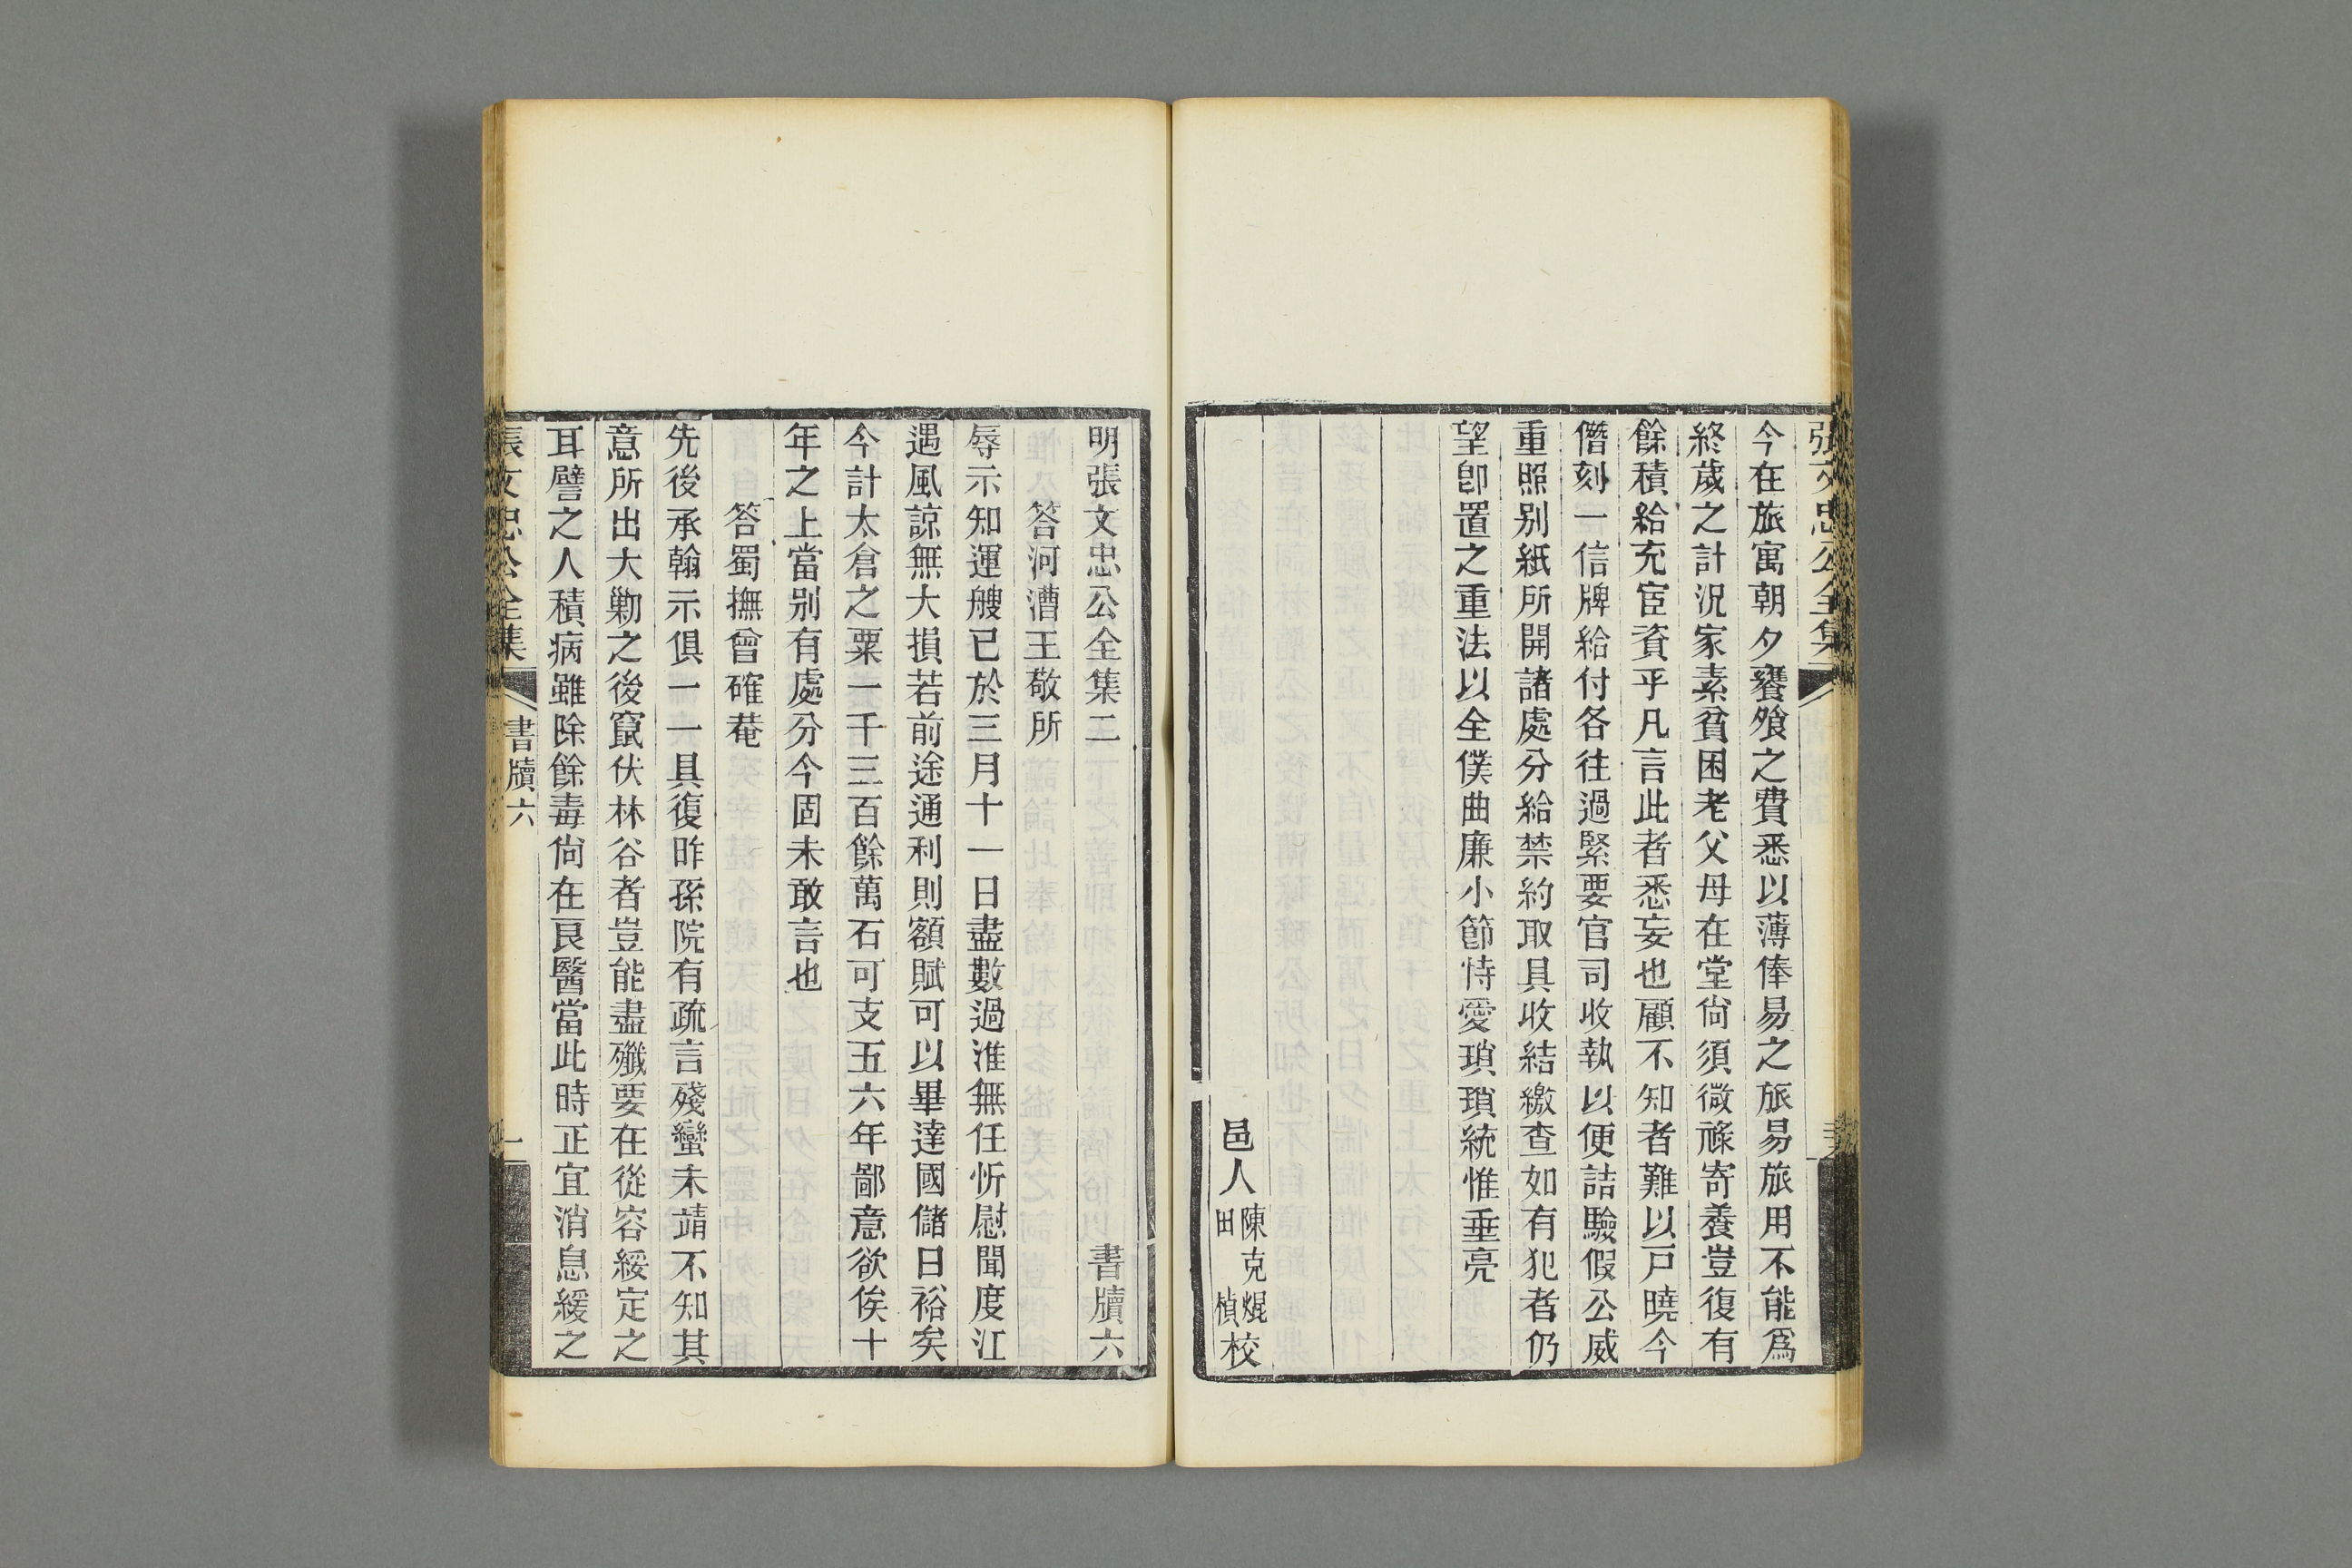 張文忠公全集
今在旅寓朝夕饔飧之費悉以薄俸易之旅易旅用不能爲
終歲之計況家素貧困老父母在堂尙須微祿寄養豈復有
餘積給充宦資乎凡言此者悉妄也顧不知者難以戸曉今
僭刻一信牌給付各往過緊要官司收執以便詰驗假公威
重照别紙所開諸處分給禁約取具收結繳查如有犯者仍
望卽置之重法以全僕曲廉小節恃愛瑣瑣統惟垂亮
邑人
陳克焜
田 楨
校
明張文忠公全集二 書牘六
答河漕王敬所
辱示知運艘已於三月十一日盡數過淮無任忻慰聞度江
遇風諒無大損若前途通利則額賦可以畢達國儲日裕矣
今計太倉之粟一千三百餘萬石可支五六年鄙意欲俟十
年之上當别有處分今固未敢言也
答蜀撫曾確菴
先後承翰示俱一一具復昨孫院有疏言殘蠻未靖不知其
意所出大勦之後竄伏林谷者豈能盡殲要在從容綏定之
耳譬之人積病雖除餘毒尙在良醫當此時正宜消息緩之
張文忠公全集 書牘六 一